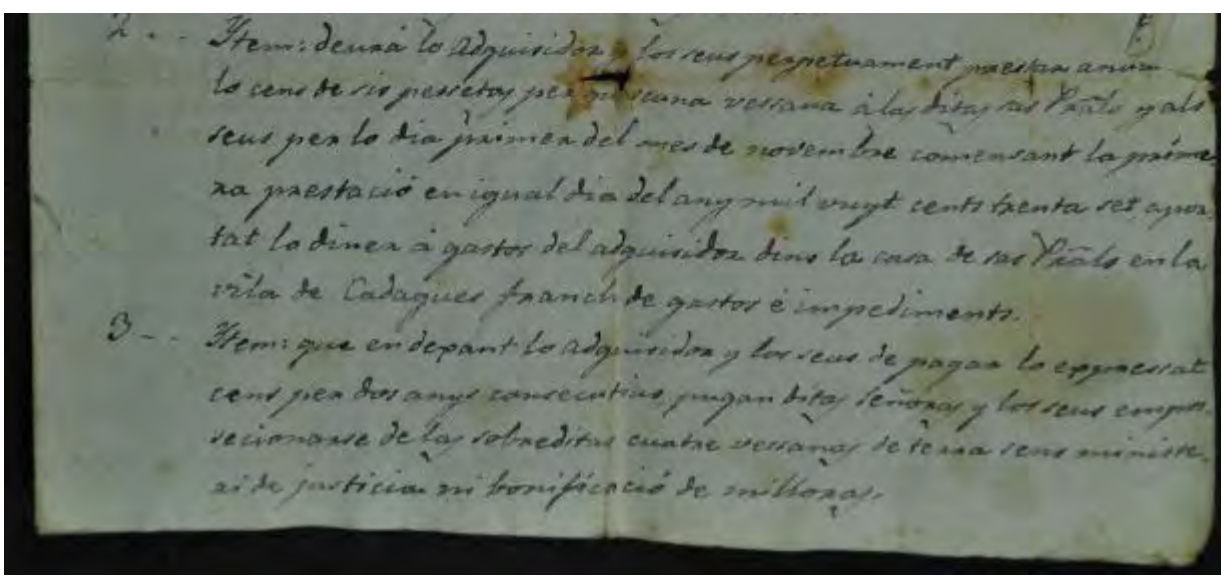 2 . . Item: deurá lo adquisidor y los seus perpetuament prestar
lo cens de sis pessetas per quiscuna vessana á las ditas sas Prāls y als
seus per lo dia primer del mes de novembre comensant la prime,
ra prestació en igual dia del any mil vuyt cents trenta set, apor,
tat lo diner á gastos del adquisidor dins la casa de sas Prāls en la
vila de Cadaques franch de gastos é impediments.
3 - . Item: que en dexant lo adquisidor y los seus de pagar lo expressat
cens per dos anys consecutius, pugan ditas señoras y los seus empos,
secionarse de las sobreditas cuatre vessanas de terra sens ministe,
ri de justicia ni bonificació de milloras.